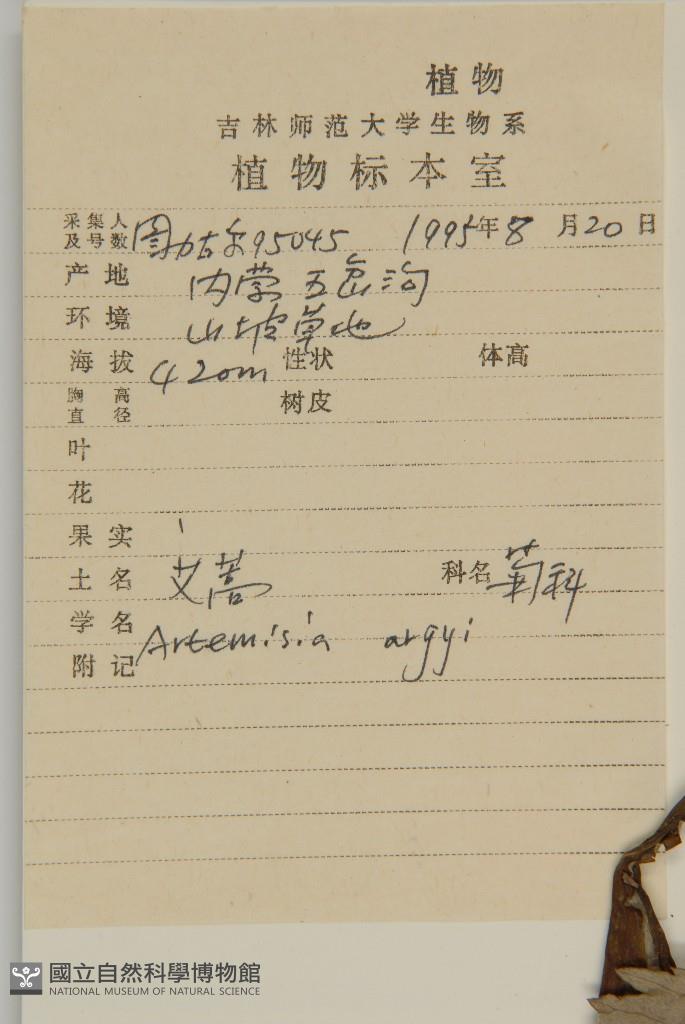 植物
吉林师范大学生物系
植物标本室
采集人及号数 图力古尔95045 1995年8月20日
产地 内蒙五岔沟
环境 山坡草地
海拔 420m 性状 体高
胸高直径 树皮
叶
花
果实
土名 艾蒿 科名 菊科
学名 Artemisia argyi
附记
國立自然科學博物館
NATIONAL MUSEUM OF NATURAL SCIENCE